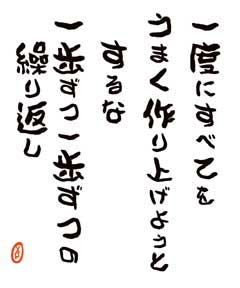 一度にすべてを
うまく作り上げようと
するな
一歩ずつ一歩ずつの
繰り返し